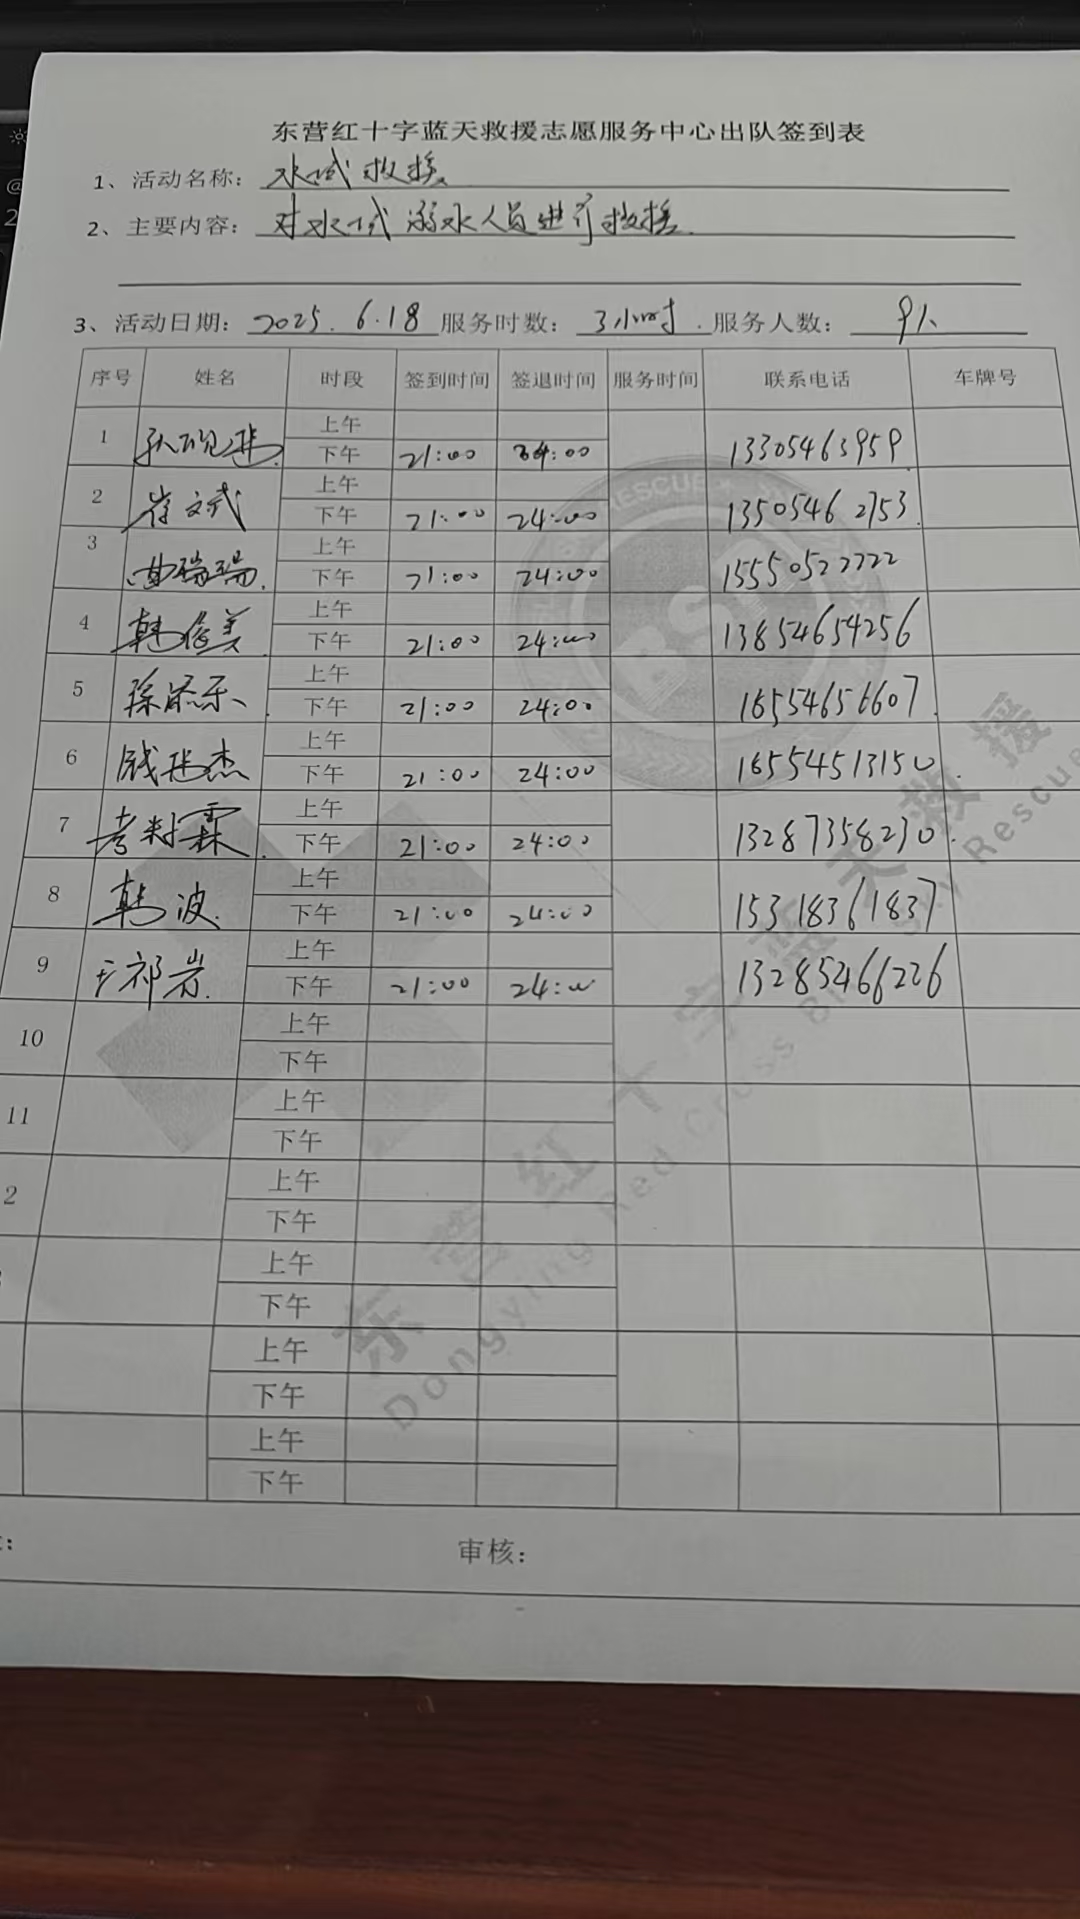 东营红十字蓝天救援志愿服务中心出队签到表
1、活动名称：水域救援
2、主要内容：对水域溺水人员进行救援.
3、活动日期：2025.6.18 服务时数：3小时. 服务人数：9人
序号 姓名 时段 签到时间 签退时间 服务时间 联系电话 车牌号
1 上午
下午 21:00 24:00 13305463959
2 崔文武 上午
下午 21:00 24:00 13505462753
3 曲瑞瑞. 上午
下午 21:00 24:00 15550522222
4 韩俊美 上午
下午 21:00 24:00 13854654256
5 徐添乐 上午
下午 21:00 24:00 16554656607
6 钱进杰 上午
下午 21:00 24:00 16554513150
7 上午
下午 21:00 24:00 13287358230
8 韩波. 上午
下午 21:00 24:00 15318361837
9 王祁岩. 上午
下午 21:00 24:00 13285466226
10 上午
下午
11 上午
下午
2 上午
下午
上午
下午
上午
下午
上午
下午
审核：
东营红十字蓝天救援
Dongying Red Cross Blue Sky Rescue
RESCUE
BSR